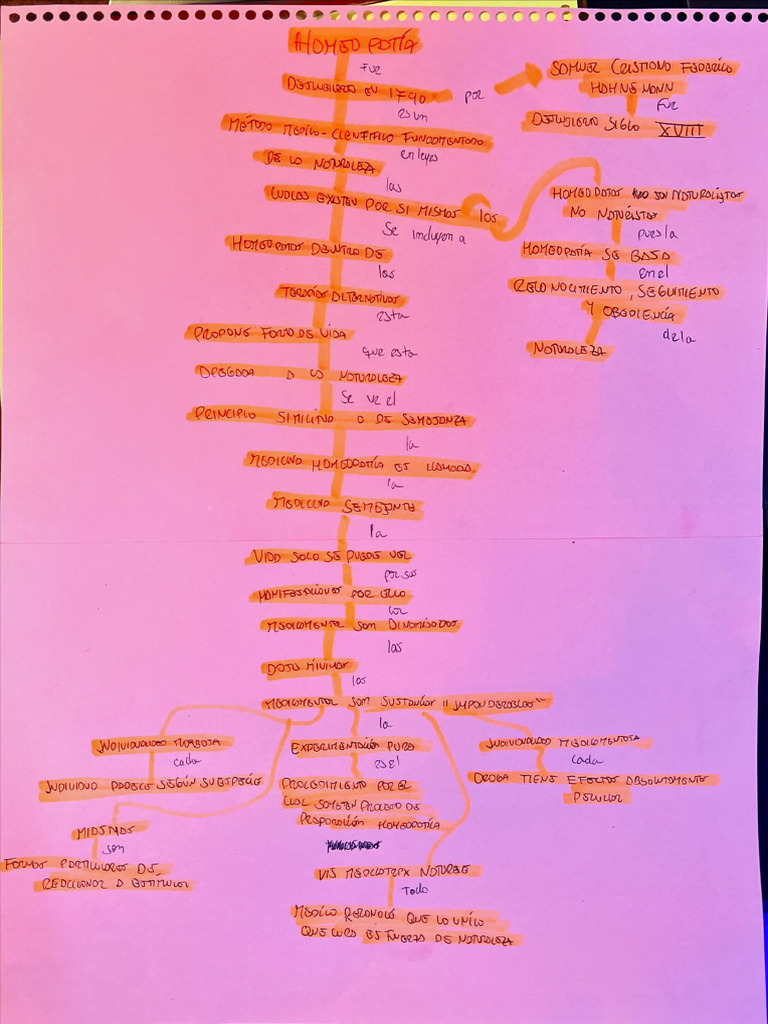 HOMEOPATÍA
FUE
DESCUBIERTO EN 1790
por
SAMUEL CRISTIANO FEDERICO
HAHNEMANN
FUE
DESCUBIERTO SIGLO XVIII
es un
MÉTODO MEDICO-CIENTIFICO FUNDAMENTADO
en leyes
DE LA NATURALEZA
las
CUALES EXISTEN POR SI MISMAS LOS
HOMEOPATAS SON NATURALISTAS
NO NATURISTAS
pues la
HOMEOPATÍA SE BASA
en el
RECONOCIMIENTO, SEGUIMIENTO
Y OBEDIENCIA
de la
NATURALEZA
Se incluyen a
HOMEOPATAS DENTRO DE
las
TERAPIAS ALTERNATIVAS
esta
PROPONE FORMA DE VIDA
que esta
APEGADA A LA NATURALEZA
Se ve el
PRINCIPIO SIMILINO O DE SEMEJANZA
la
MEDICINA HOMEOPATÍA ES LLAMADA
la
MEDICINA SEMEJANTE
la
VIDA SOLO SE PUEDE VER
por sus
MANIFESTACIONES POR ELLO
los
MEDICAMENTOS SON DINAMIZADOS
las
DOSIS MINIMAS
los
MEDICAMENTOS SON SUSTANCIAS "IMPONDERABLES"
INDIVIDUALIDAD MORBOSA
cada
INDIVIDUO PADECE SEGÚN SU ESPECIE
MIASMAS
son
FORMAS PARTICULARES DE
REACCIONAR A ESTIMULOS
la
EXPERIMENTACIÓN PURA
es el
PROCEDIMIENTO POR EL
CUAL SOMETEN PRODUCTO DE
PREPARACIÓN HOMEOPATÍA
VIS MEDICATRIX NATURAE
Todo
MEDICO RECONOCE QUE LO UNICO
QUE CURA ES FUERZA DE NATURALEZA
INDIVIDUALIDAD MEDICAMENTOSA
Cada
DROGA TIENE EFECTOS ABSOLUTAMENTE
PECULIAR